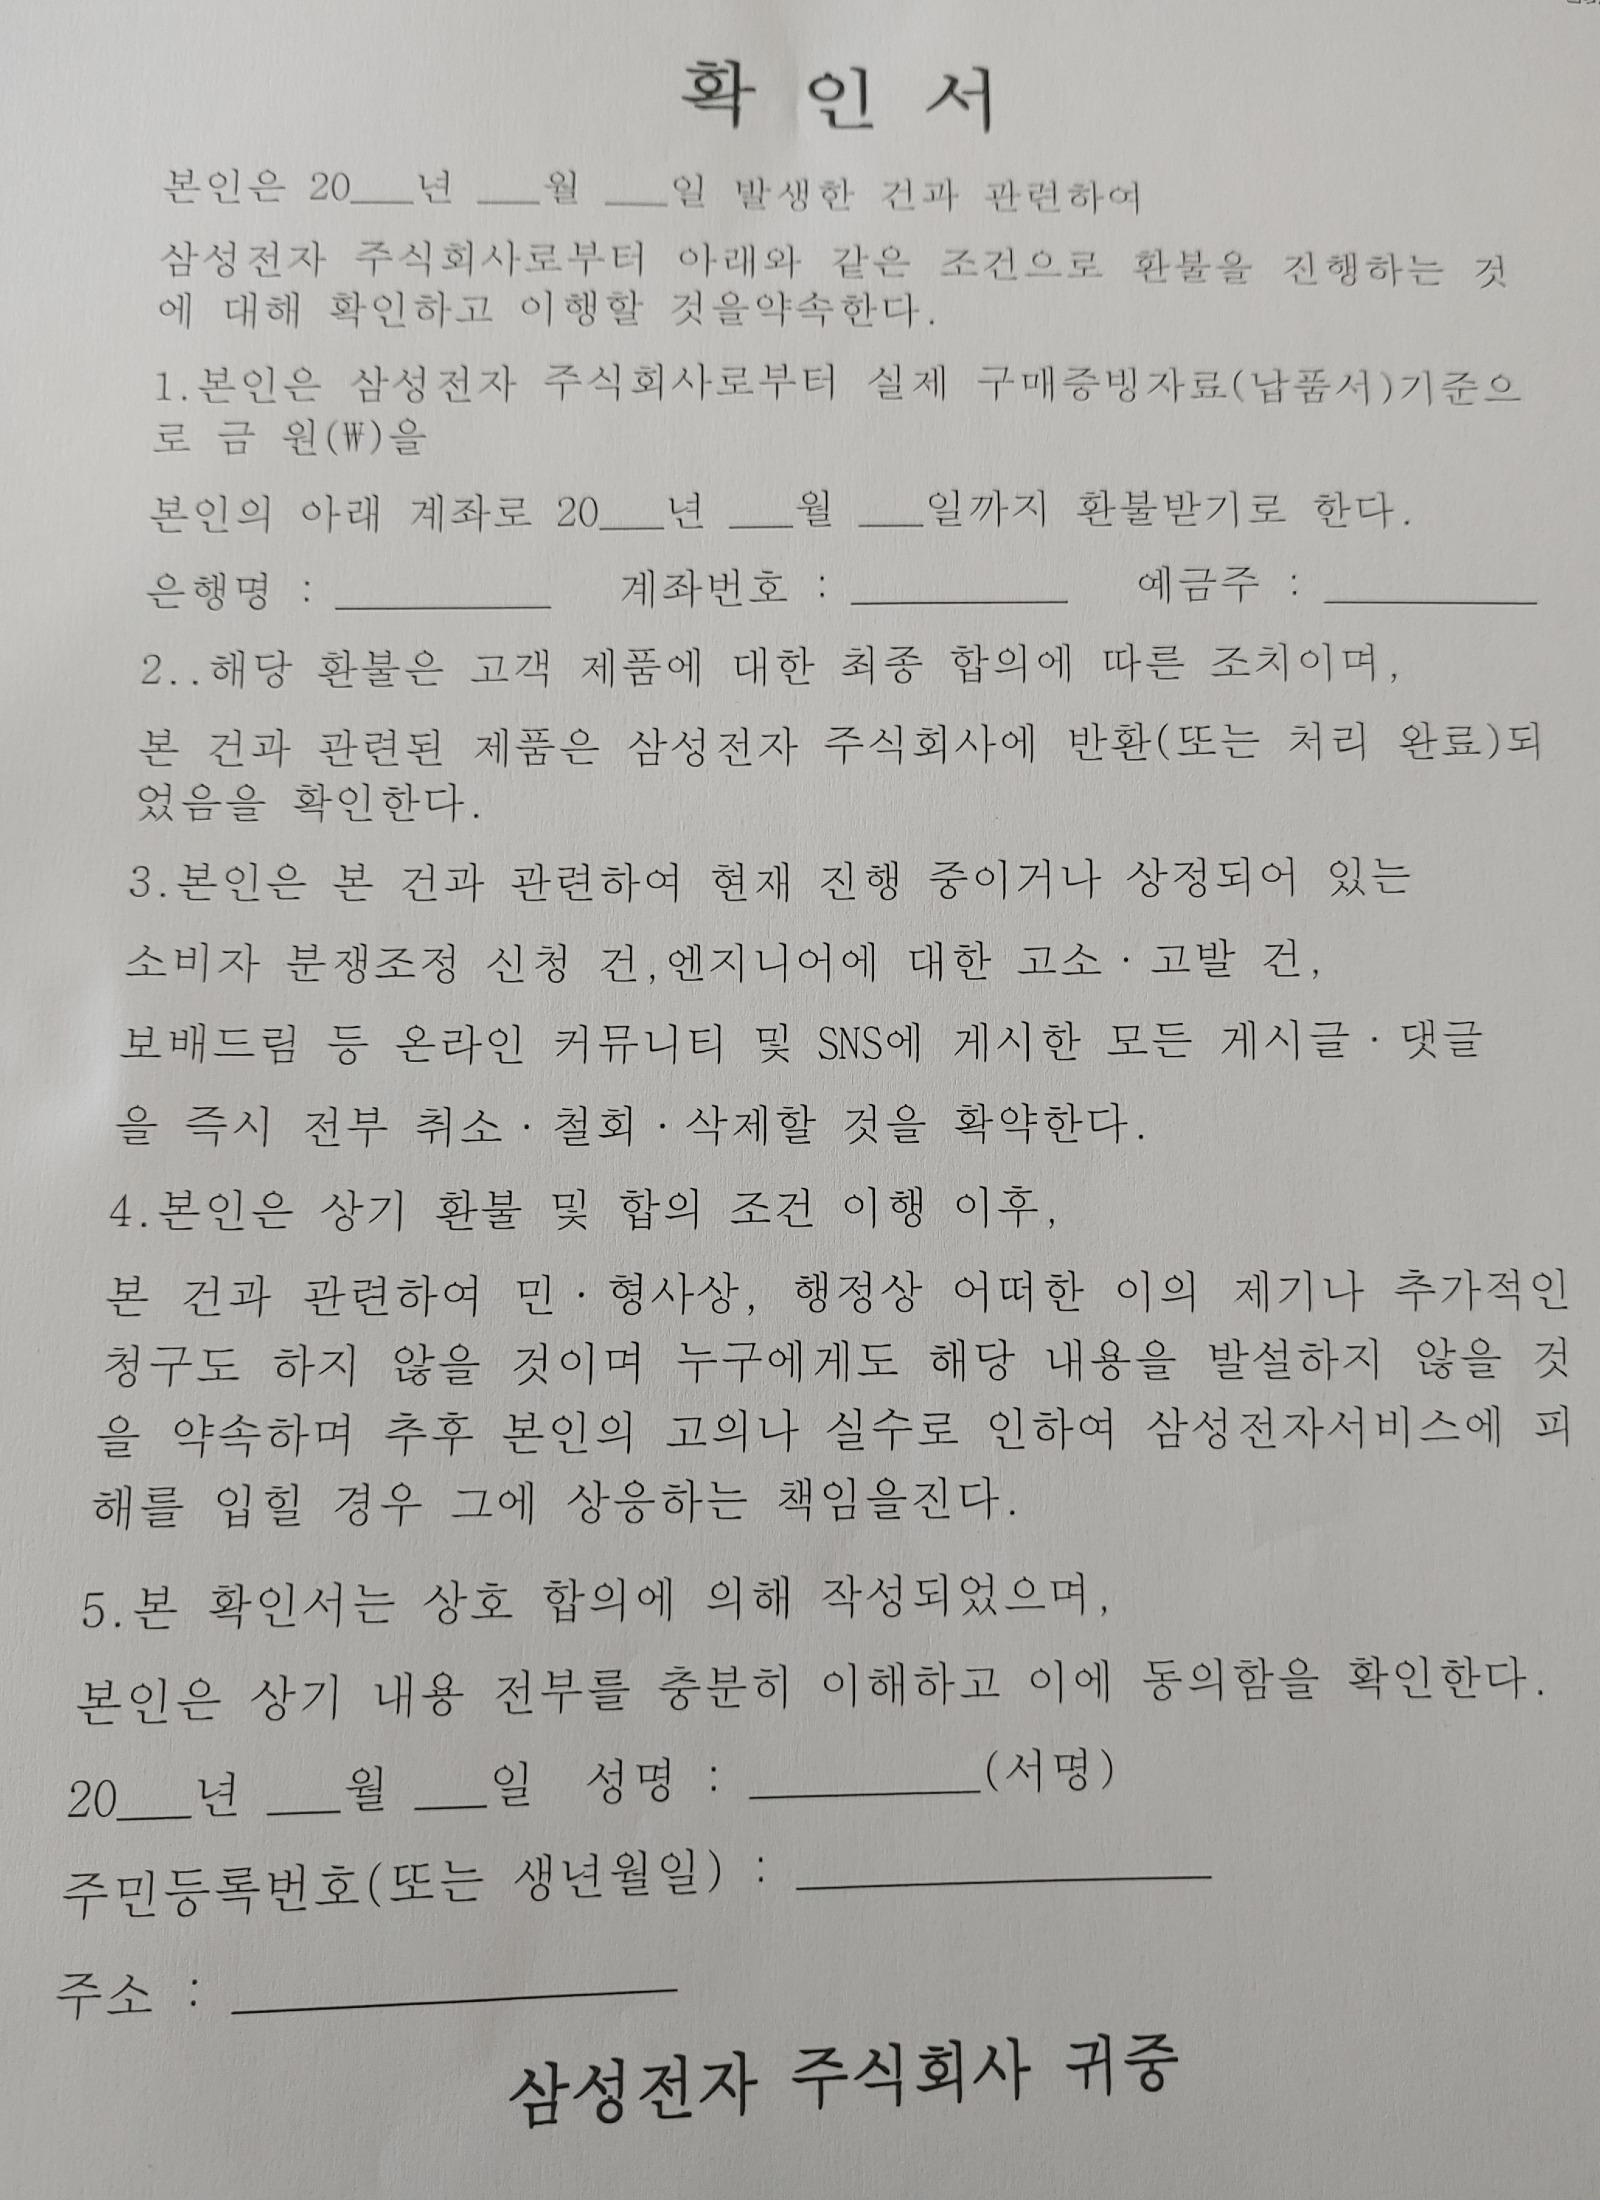 확 인 서
본인은 20___년 ___월 ___일 발생한 건과 관련하여
삼성전자 주식회사로부터 아래와 같은 조건으로 환불을 진행하는 것
에 대해 확인하고 이행할 것을약속한다.
1.본인은 삼성전자 주식회사로부터 실제 구매증빙자료(납품서)기준으
로 금 원(₩)을
본인의 아래 계좌로 20___년 ___월 ___일까지 환불받기로 한다.
은행명 : __________ 계좌번호 : __________ 예금주 : __________
2..해당 환불은 고객 제품에 대한 최종 합의에 따른 조치이며,
본 건과 관련된 제품은 삼성전자 주식회사에 반환(또는 처리 완료)되
었음을 확인한다.
3.본인은 본 건과 관련하여 현재 진행 중이거나 상정되어 있는
소비자 분쟁조정 신청 건,엔지니어에 대한 고소·고발 건,
보배드림 등 온라인 커뮤니티 및 SNS에 게시한 모든 게시글·댓글
을 즉시 전부 취소·철회·삭제할 것을 확약한다.
4.본인은 상기 환불 및 합의 조건 이행 이후,
본 건과 관련하여 민·형사상, 행정상 어떠한 이의 제기나 추가적인
청구도 하지 않을 것이며 누구에게도 해당 내용을 발설하지 않을 것
을 약속하며 추후 본인의 고의나 실수로 인하여 삼성전자서비스에 피
해를 입힐 경우 그에 상응하는 책임을진다.
5.본 확인서는 상호 합의에 의해 작성되었으며,
본인은 상기 내용 전부를 충분히 이해하고 이에 동의함을 확인한다.
20___년 ___월 ___일 성명 : __________(서명)
주민등록번호(또는 생년월일) : __________________
주소 : ____________________
삼성전자 주식회사 귀중